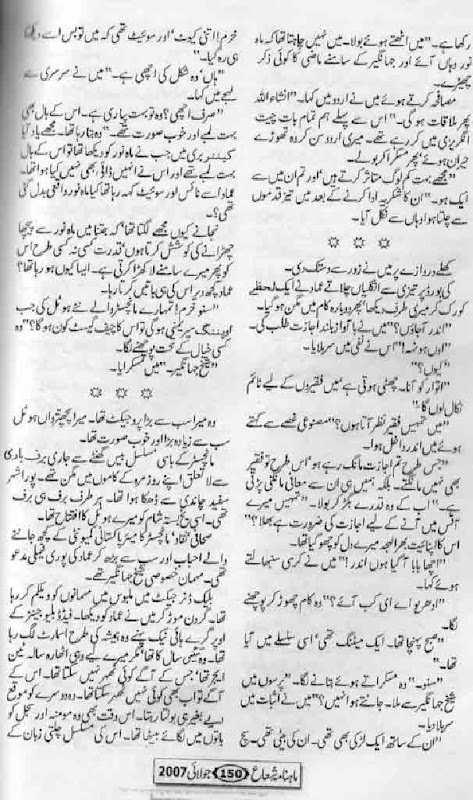 رکھا ہے۔" میں اٹھتے ہوئے بولا۔ میں نہیں چاہتا تھا کہ ماہ
نور وہاں آئے اور جہانگیر کے سامنے ماضی کا کوئی ذکر
چھیڑے۔
مصافحہ کرتے ہوئے میں نے اردو میں کہا۔ "انشاء اللہ
پھر ملاقات ہو گی۔" اس سے پہلے ہم تمام بات چیت
انگریزی میں کر رہے تھے۔ میری اردو سن کر وہ تھوڑے
حیران ہوئے پھر مسکرا کر بولے۔
"مجھے بہت کم لوگ متاثر کرتے ہیں اور تم ان میں سے
ایک ہو۔" ان کا شکریہ ادا کرنے کے بعد میں تیز قدموں
سے چلتا ہوا وہاں سے نکل آیا۔
کھلے دروازے پر میں نے زور سے دستک دی۔
کی بورڈ پر تیزی سے انگلیاں چلاتے عماد نے ایک لحظے
کو رک کر میری طرف دیکھا پھر دوبارہ کام میں مگن ہو گیا۔
"اندر آ جاؤں؟" میں نے با آواز بلند اجازت طلب کی۔
"اوں ہونہہ!" اس نے نفی میں سر ہلایا۔
"کیوں؟"
"اتوار کو آنا۔ چھٹی ہوتی ہے میں فقیروں کے لیے ٹائم
نکال لوں گا۔"
"میں تمہیں فقیر نظر آتا ہوں؟" مصنوعی غصے سے کہتے
ہوئے میں اندر داخل ہوا۔
"جس طرح تم اجازت مانگ رہے ہو، اس طرح تو فقیر
بھی نہیں مانگتے۔ بلکہ ہمیں ہی ان سے معافی مانگنی پڑتی
ہے۔" اب کے وہ قدرے بگڑ کر بولا۔ "تمہیں میرے
آفس میں آنے کے لیے اجازت کی ضرورت ہے بھلا؟"
اس کا اپنائیت بھرا لہجہ میرے دل کو چھو گیا تھا۔
"اچھا بابا آ گیا ہوں اندر!" میں نے کرسی سنبھالتے
ہوئے کہا۔
"ادھر یو اے ای کب آئے؟" وہ کام چھوڑ کر پوچھنے
لگا۔
"صبح پہنچا تھا۔ ایک میٹنگ تھی، اسی سلسلے میں آیا
تھا۔"
"سنو۔" وہ مسکراتے ہوئے بتانے لگا۔ "پرسوں میں
شیخ جہانگیر سے ملا۔ جانتے ہو انہیں؟" میں نے اثبات میں
سر ہلا دیا۔
"ان کے ساتھ ایک لڑکی بھی تھی۔ ان کی بیٹی تھی۔ سچ
خرم! اتنی کیوٹ اور سوئیٹ تھی کہ میں تو بس اسے دیکھتا
ہی رہ گیا۔"
"ہاں وہ شکل کی اچھی ہے۔" میں نے سرسری سے
لہجے میں کہا۔
"صرف اچھی؟ وہ تو بہت پیاری ہے۔ اس کے بال بھی
بہت لمبے اور خوب صورت تھے۔" وہ بتا رہا تھا۔ مجھے یاد آیا
میں جب میں نے ماہ نور کو دیکھا تھا تو اس کے بال
بہت لمبے تھے اور اس نے انہیں ڈائی بھی نہیں کیا ہوا تھا۔
عماد اسے نائس اور سوئیٹ کہہ رہا تھا کیا ماہ نور واقعی بدل گئی
تھی؟
نجانے کیوں مجھے لگتا تھا کہ جتنا میں ماہ نور سے پیچھا
چھڑانے کی کوشش کرتا ہوں قدرت کسی نہ کسی طرح اس
کو پھر میرے سامنے لا کھڑا کرتی ہے۔ ایسا کیوں ہو رہا تھا؟
عماد کچھ دیر اس کی ہی باتیں کرتا رہا۔
"سنو خرم! تمہارے مانچسٹر والے نئے ہوٹل کی جب
اوپننگ سیریمنی ہو گی تو اس کا چیف گیسٹ کون ہو گا؟" وہ
کسی خیال کے تحت پوچھنے لگا۔
"شیخ جہانگیر۔" میں مسکرایا۔
وہ میرا سب سے بڑا پروجیکٹ تھا۔ میرا پچھترواں ہوٹل
سب سے زیادہ بڑا اور خوب صورت تھا۔
مانچسٹر کے باسی مسلسل بیس گھنٹے سے جاری برف باری
سے لاتعلق اپنے روز مرہ کے کاموں میں مگن تھے۔ پورا شہر
سفید چاندی سے ڈھکا ہوا تھا۔ ہر طرف برف ہی برف
تھی۔ اسی یخ بستہ شام کو میرے ہوٹل کا افتتاح تھا۔
صحافی، نقاد، مانچسٹر کا میئر، پاکستانی کمیونٹی کے کچھ جاننے
والے احباب اور سب سے بڑھ کر عماد کی پوری فیملی مدعو
تھی۔ مہمان خصوصی شیخ جہانگیر تھے۔
بلیک ڈنر جیکٹ میں ملبوس میں مہمانوں کو ویلکم کر رہا
تھا۔ گردن موڑ کر میں نے عماد کو دیکھا۔ فیڈڈ بلیو جینز کے
اوپر گرے ہائی نیک پہنے وہ ہمیشہ کی طرح اسمارٹ لگ رہا
تھا۔ وہ تیس سال کا تھا مگر میرے لیے وہی اٹھارہ سالہ ٹین
ایجر تھا جس کے آگے کوئی ٹھہر نہیں سکتا تھا۔ اس کے
آگے تو اب بھی کوئی نہیں ٹھہر سکتا تھا۔ وہ دوسرے کو موقع
دیے بغیر ہی بولتا رہتا۔ اس وقت بھی وہ مومنہ اور تجمل کو
باتوں میں لگائے بیٹھا تھا۔ اس کی مسلسل چلتی زبان کے
ماہنامہ شعاع 150 جولائی 2007